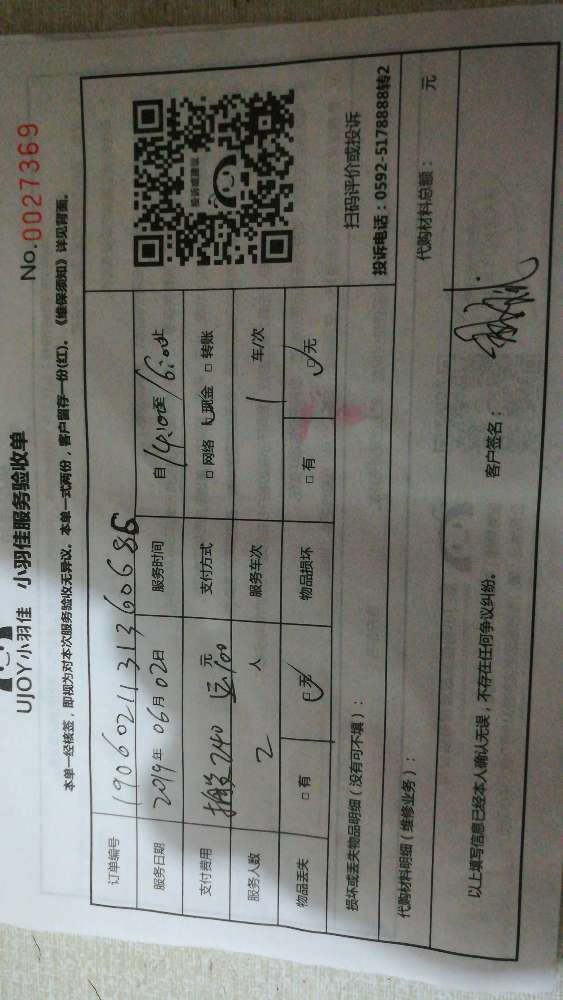 UJOY小羽佳 小羽佳服务验收单
No.0027369
本单一经核签，即视为对本次服务验收无异议。本单一式两份，客户留存一份(红)。《维保须知》详见背面。
订单编号 190602113136068
服务日期 2019年 06月 02日 服务时间 自 14:00至16:00止
支付费用 240 元 运100 支付方式 □ 网络 □ 现金 □ 转账
服务人数 2 人 服务车次 1 车/次
物品丢失 □ 有 □ 无 物品损坏 □ 有 □ 无
投诉或建议
扫码评价或投诉
投诉电话：0592-5178888转2
损坏或丢失物品明细（没有可不填）：
代购材料明细（维修业务）： 代购材料总额： 元
以上填写信息已经本人确认无误，不存在任何争议纠纷。 客户签名：